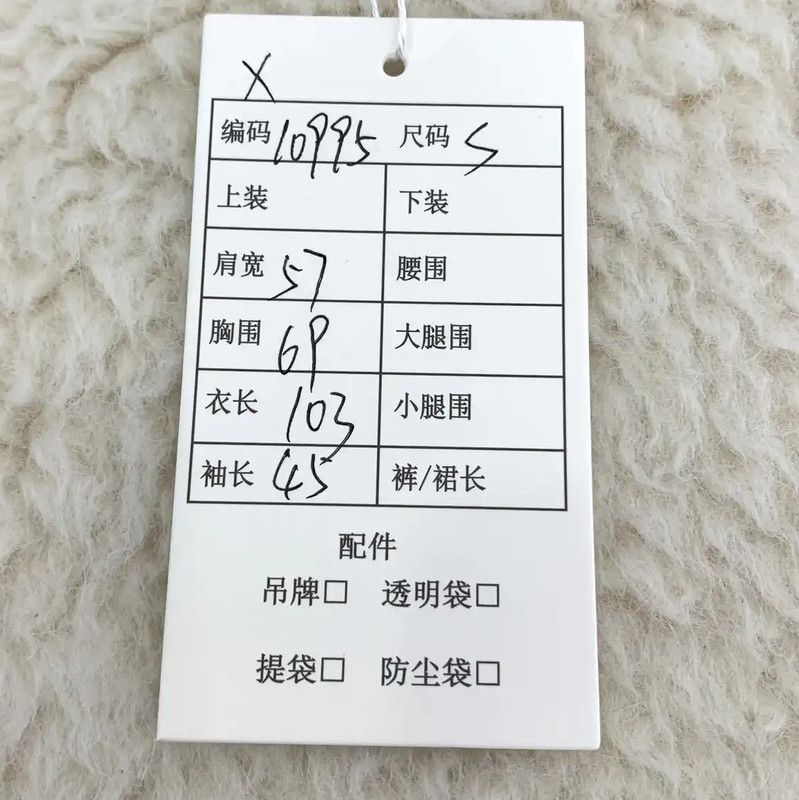 X
编码 10995 尺码 S
上装 下装
肩宽 57 腰围
胸围 69 大腿围
衣长 103 小腿围
袖长 45 裤/裙长
配件
吊牌□ 透明袋□
提袋□ 防尘袋□